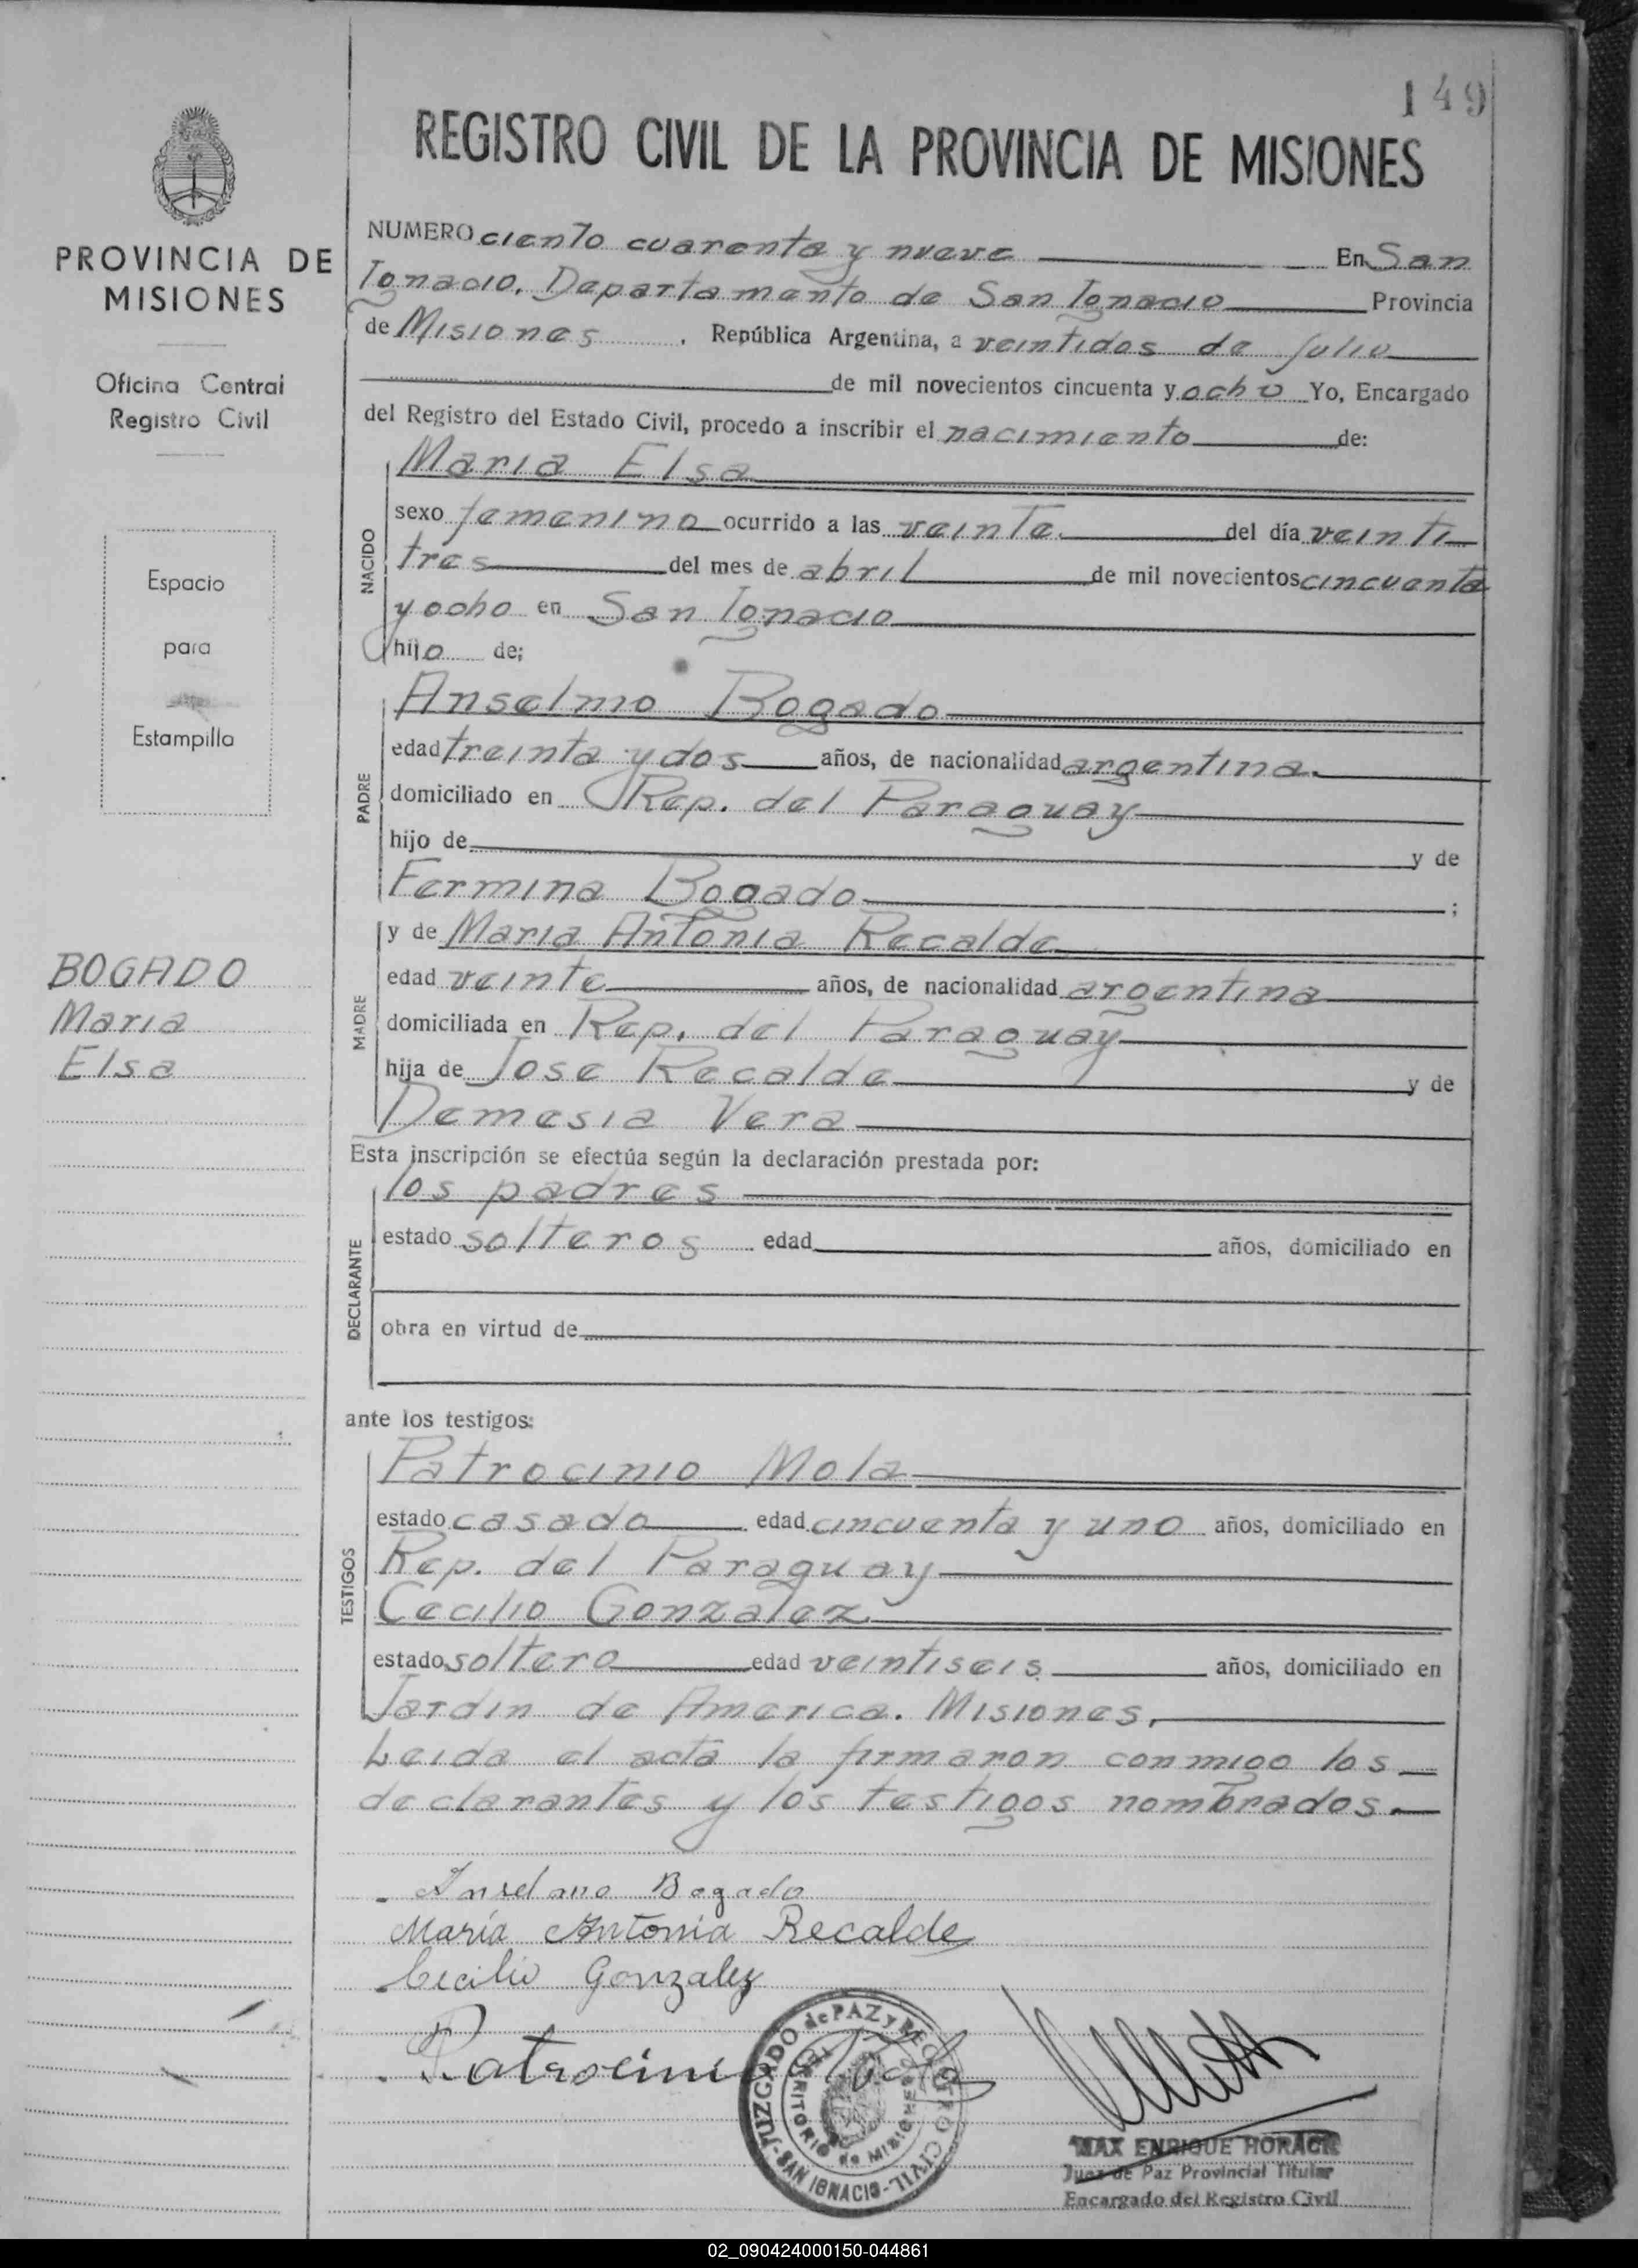 149
REGISTRO CIVIL DE LA PROVINCIA DE MISIONES
PROVINCIA DE
MISIONES
Oficina Central
Registro Civil
Espacio
para
Estampilla
BOGADO
Maria
Elsa
NUMERO ciento cuarenta y nueve En San
Ignacio. Departamento de San Ignacio Provincia
de Misiones, República Argentina, a veintidos de julio
de mil novecientos cincuenta y ocho Yo, Encargado
del Registro del Estado Civil, procedo a inscribir el nacimiento de:
NACIDO
Maria Elsa
sexo femenino ocurrido a las veinte del día veinti
tres del mes de abril de mil novecientos cincuenta
y ocho en San Ignacio
hijo de;
PADRE
Anselmo Bogado
edad treinta y dos años, de nacionalidad argentina.
domiciliado en Rep. del Paraguay
hijo de y de
Fermina Bogado ;
MADRE
y de Maria Antonia Recalde
edad veinte años, de nacionalidad argentina
domiciliada en Rep. del Paraguay
hija de Jose Recalde y de
Demesia Vera
Esta inscripción se efectúa según la declaración prestada por:
DECLARANTE
los padres
estado solteros edad años, domiciliado en
obra en virtud de
ante los testigos:
TESTIGOS
Patrocinio Mola
estado casado edad cincuenta y uno años, domiciliado en
Rep. del Paraguay
Cecilio Gonzalez
estado soltero edad veintiseis años, domiciliado en
Jardin de America. Misiones.
Leida el acta la firmaron conmigo los
declarantes y los testigos nombrados.
Anselmo Bogado
María Antonia Recalde
Cecilio Gonzalez
Patrocinio Mola
JUZGADO de PAZ y REGISTRO CIVIL - SAN IGNACIO -
TERRITORIO de MISIONES
MAX ENRIQUE HORACK
Juez de Paz Provincial Titular
Encargado del Registro Civil
02_090424000150-044861